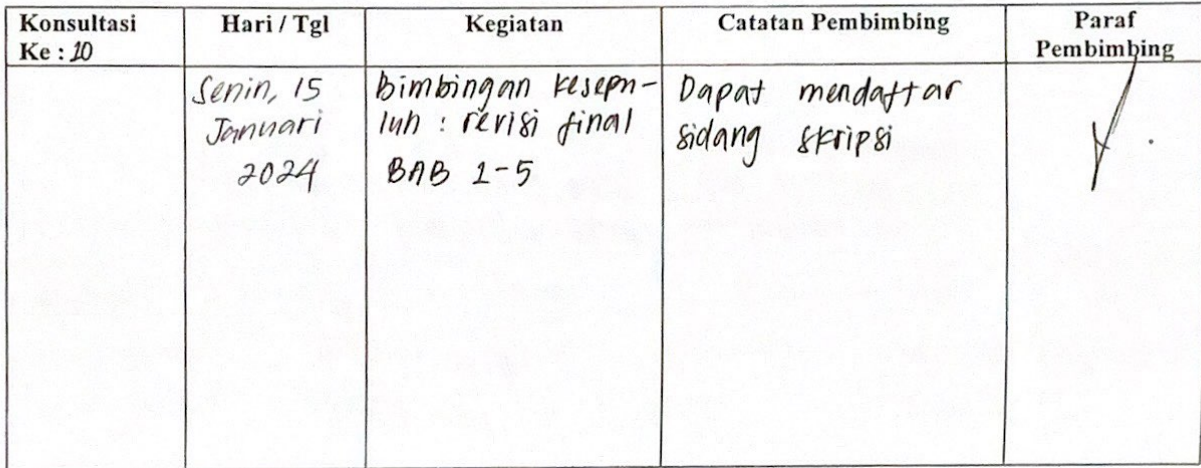 Konsultasi
Ke : 10
Hari / Tgl
Kegiatan
Catatan Pembimbing
Paraf
Pembimbing
Senin, 15
Januari
2024
bimbingan kesepu-
luh : revisi final
BAB 1-5
Dapat mendaftar
sidang skripsi